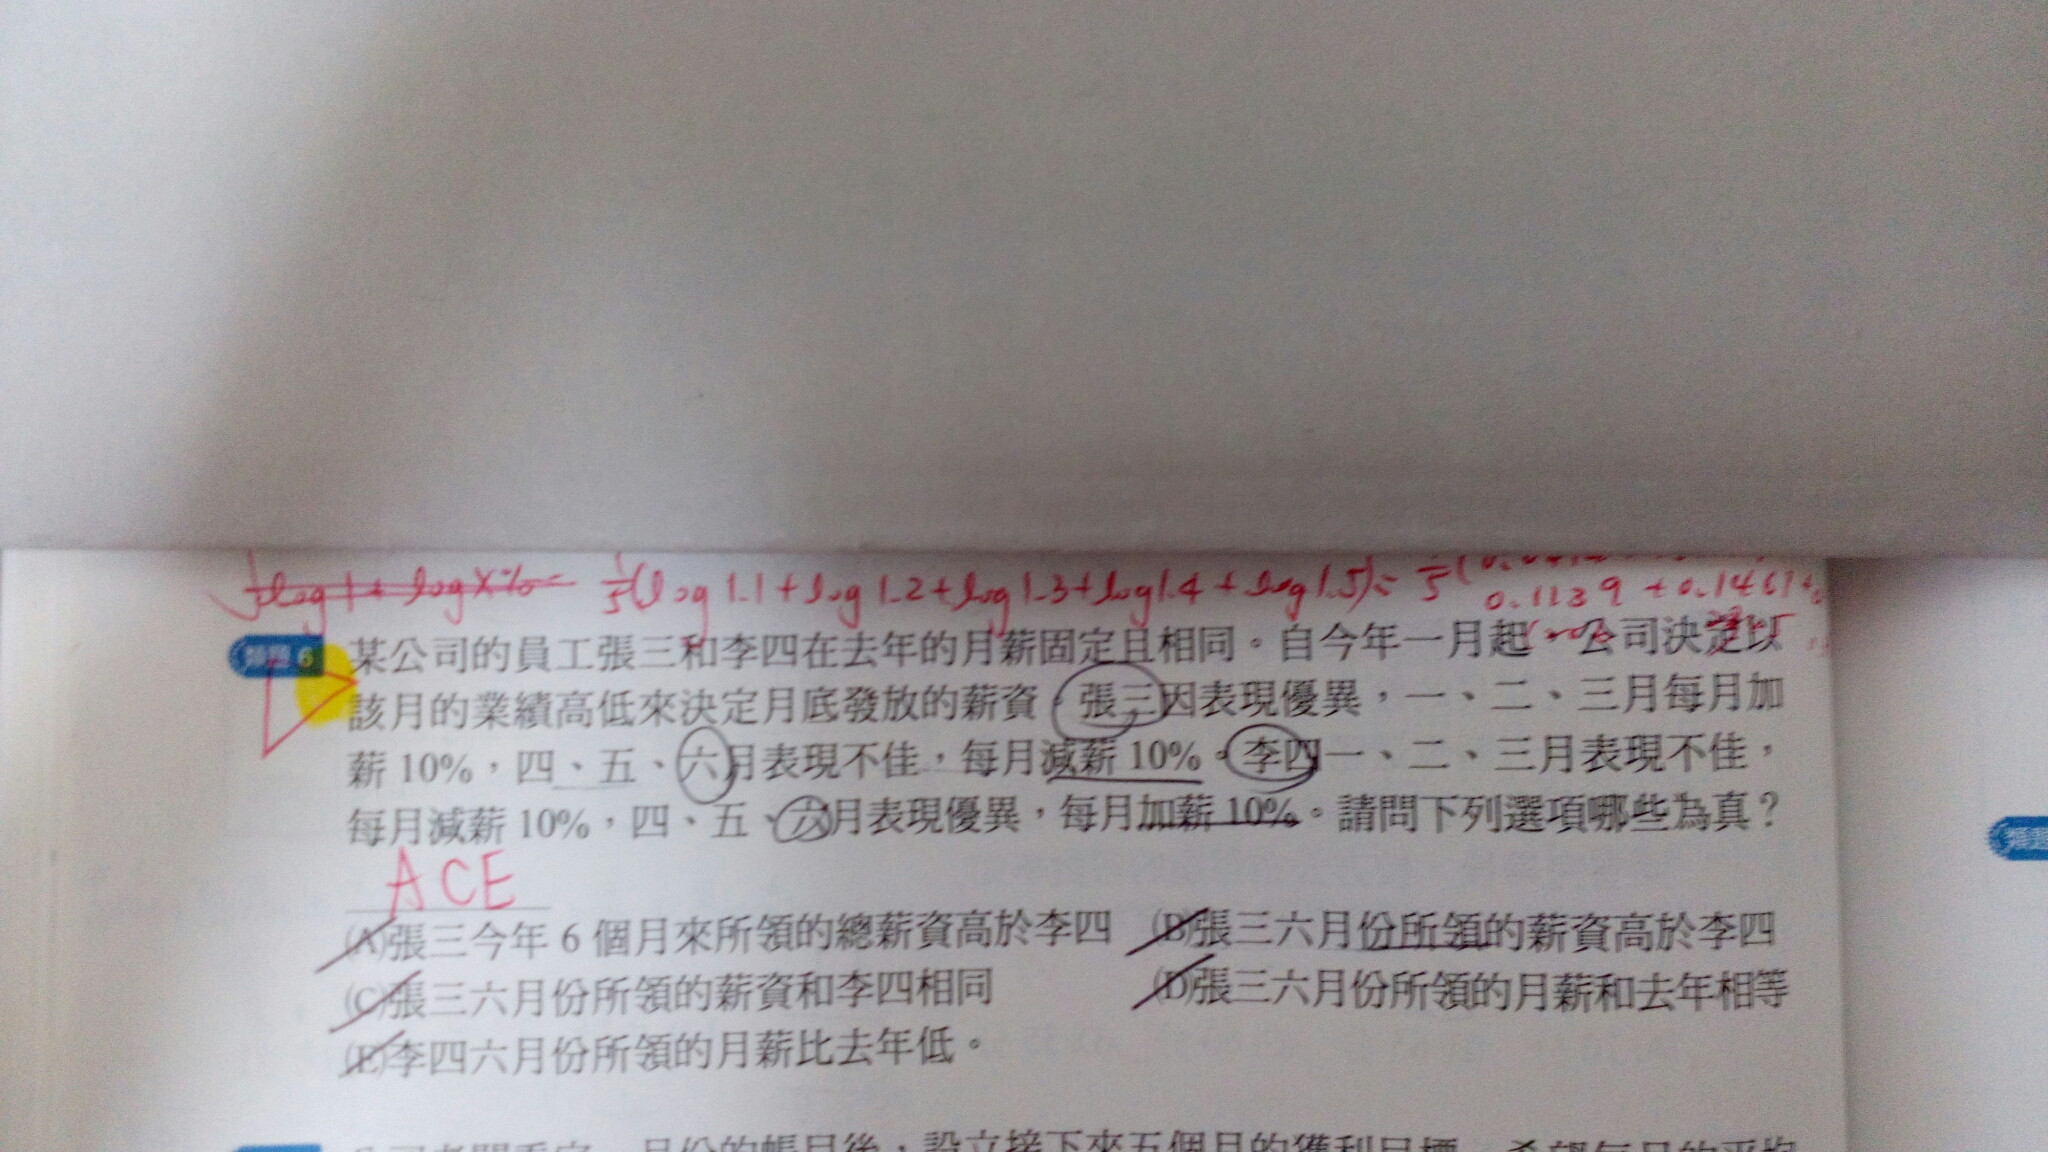 1/5(log1.1+log1.2+log1.3+log1.4+log1.5)= 1/5(
0.1139+0.1461+
類題6
某公司的員工張三和李四在去年的月薪固定且相同。自今年一月起,公司決定以
該月的業績高低來決定月底發放的薪資。張三因表現優異,一、二、三月每月加
薪10%,四、五、六月表現不佳,每月減薪10%。李四一、二、三月表現不佳,
每月減薪10%,四、五、六月表現優異,每月加薪10%。請問下列選項哪些為真?
ACE
(A)張三今年6個月來所領的總薪資高於李四 (B)張三六月份所領的薪資高於李四
(C)張三六月份所領的薪資和李四相同 (D)張三六月份所領的月薪和去年相等
(E)李四六月份所領的月薪比去年低。
類題